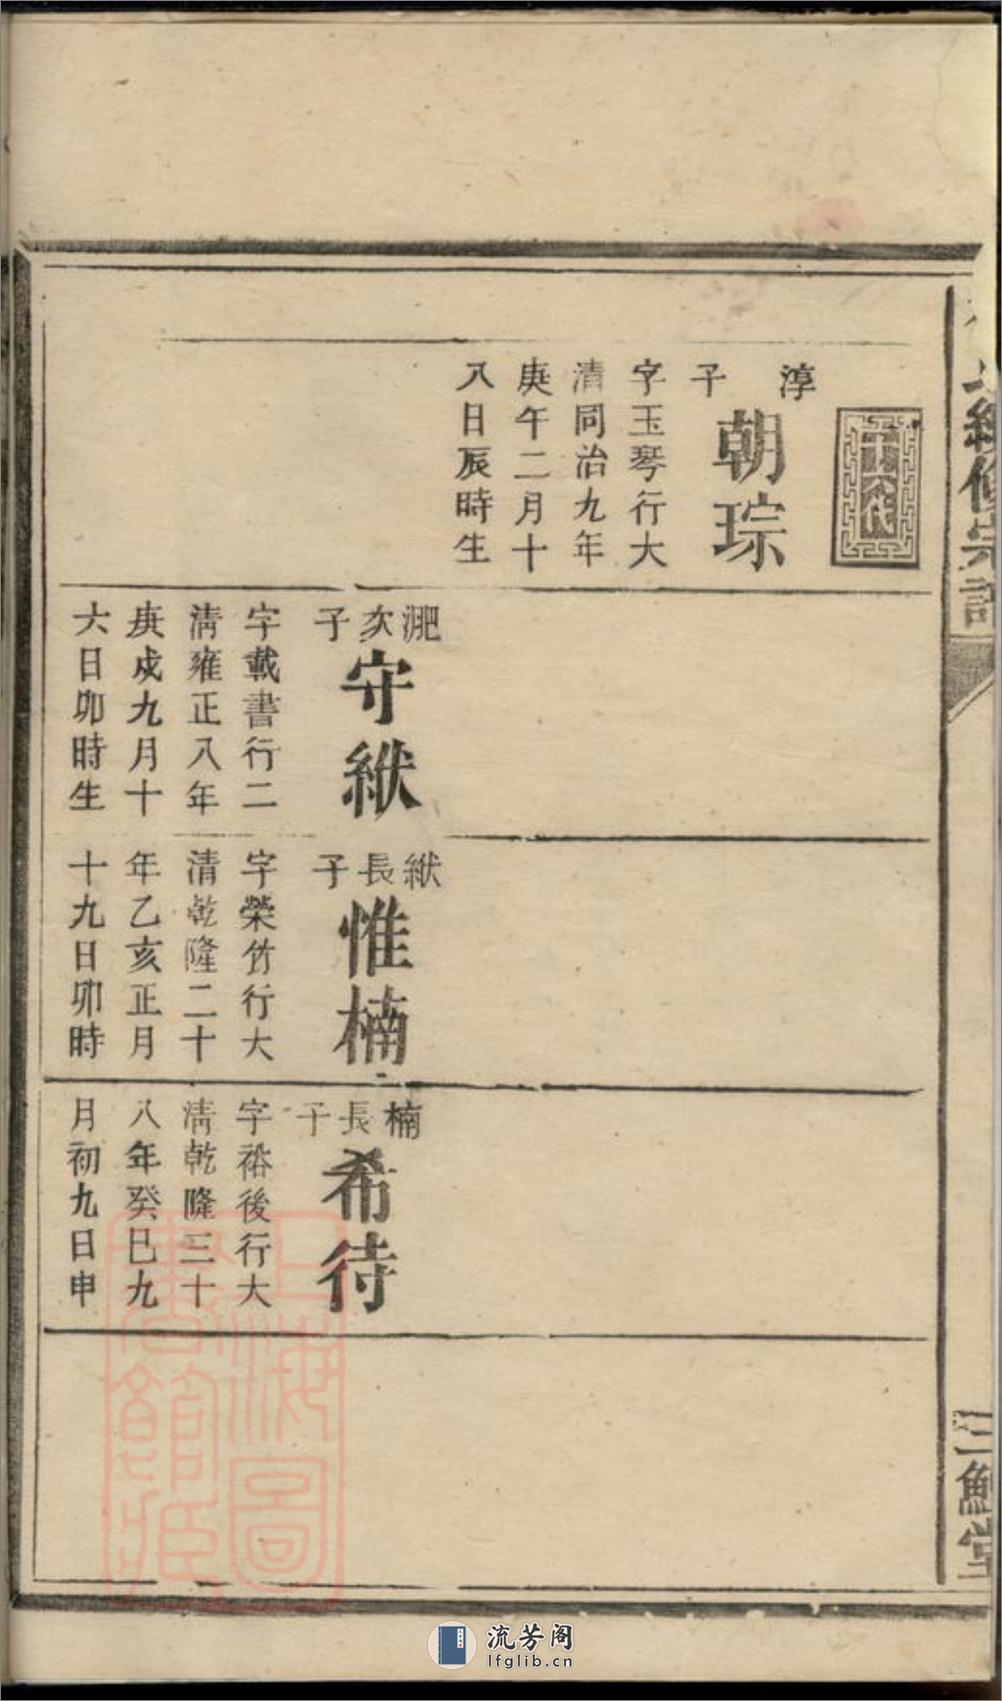 續修宗譜
三鱣堂
十六代
淳子
朝琮
字玉琴行大
清同治九年
庚午二月十
八日辰時生
淝次子
守紱
字載書行二
清雍正八年
庚戍九月十
六日卯時生
紱長子
惟楠
字榮竹行大
清乾隆二十
年乙亥正月
十九日卯時
楠長子
希待
字裕後行大
清乾隆三十
八年癸巳九
月初九日申
上海圖
書館藏
流芳阁
lfglib.cn